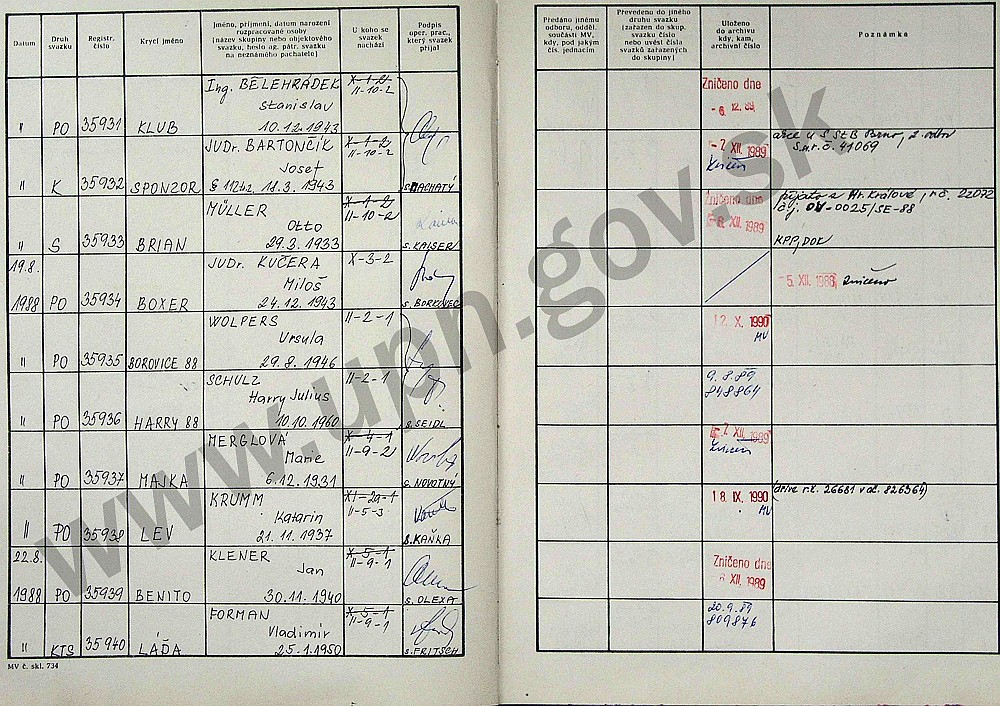 Datum
Druh svazku
Registr. číslo
Krycí jméno
Jméno, příjmení, datum narození
rozpracované osoby
(název skupiny nebo objektového
svazku, heslo ag. pátr. svazku
na neznámého pachatele)
U koho se
svazek
nachází
Podpis
oper. prac.,
který svazek
přijal
Předáno jinému
odboru, odděl.
součásti MV,
kdy, pod jakým
čís. jednacím
Převedeno do jiného
druhu svazku
(zařazen do skup.
svazku číslo
nebo uvést čísla
svazků zařazených
do skupiny)
Uloženo
do archivu
kdy, kam,
archivní číslo
Poznámka
Ing. BĚLEHRÁDEK X-1-2
Stanislav II-10-2
" PO 35931 KLUB 10.12.1943
Zničeno dne
-6. 12. 89
JUDr. BARTONČÍK X-1-2
Josef II-10-2
" K 35932 SPONZOR 18.3.1943 s. MACHATÝ
-7. XII. 1989
akce u S StB Brno, 2. odbor
S.u.r.č. 41069
MÜLLER X-1-2
Otto II-10-2
" S 35933 BRIAN 29.3.1933 s. KAISER
Zničeno dne
-8. XII. 1989
přijato z Hr. Králové, r.č. 22072
č.j. OV-0025/SE-88
KPP, DOK
19.8. JUDr. KUČERA X-3-2
Miloš
1988 PO 35934 BOXER 24.12.1943 s. BORKOVEC
-5. XII. 1988 zničeno
WOLPERS II-2-1
Ursula
" PO 35935 BOROVICE 88 29.8.1946
12. X. 1990
MV
SCHULZ II-2-1
Harry Julius
" PO 35936 HARRY 88 10.10.1960 s. SEIDL
9.8.89
848864
MERGLOVÁ X-4-1
Marie II-9-2
" PO 35937 MAJKA 6.12.1931 s. NOVOTNÝ
7. XII. 1989
KRUMM XI-2a-1
Katarin II-5-3
" PO 35938 LEV 21.11.1937 s. KAŇKA
18. IX. 1990
MV
(dříve r.č. 26681 v al. 826364)
22.8. KLENER X-5-1
Jan II-9-1
1988 PO 35939 BENITO 30.11.1940 s. OLEXA
Zničeno dne
6 XII. 1989
FORMAN X-5-1
Vladimír II-9-1
" KTS 35940 LÁĎA 25.1.1950 s. FRITSCH
20.9.89
809876
MV č. skl. 734
www.upn.gov.sk